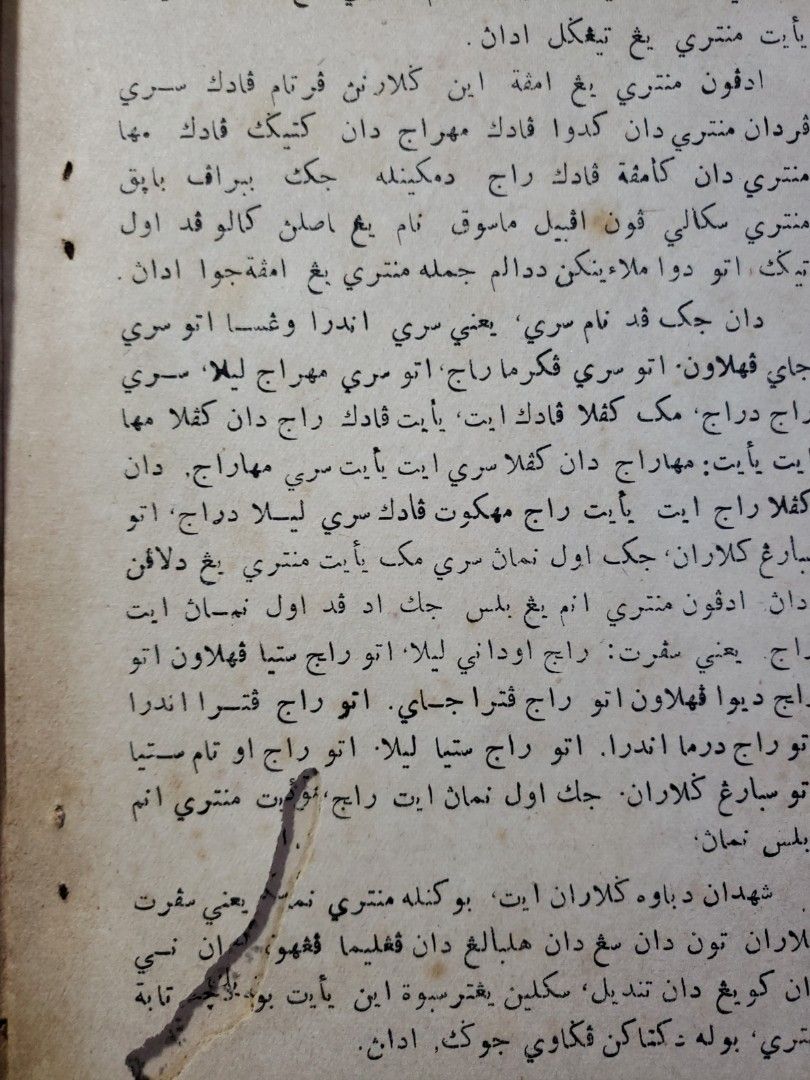 يأيت منتري يڠ تيڠݢل اداڽ.
ادڤون منتري يڠ امڤة اين ݢلارنڽ ڤرتام ڤادك سري
ڤردان منتري دان كدوا ڤادك مهراج دان كتيݢ ڤادك مها
منتري دان كأمڤة ڤادك راج دمكينله جك ببراڤ باڽق
منتري سكالي ڤون اڤبيل ماسوق نام يڠ اصلڽ كالو ڤد اول
تيݢ اتو دوا ملاءينكن ددالم جمله منتري يڠ امڤة جوا اداڽ.
دان جك ڤد نام سري، يعني سري اندرا وڠسا اتو سري
جاي ڤهلاون. اتو سري ڤكرما راج، اتو سري مهراج ليلا، سري
راج دراج، مك كڤلا ڤادك ايت، يأيت ڤادك راج دان كڤلا مها
ايت يأيت: مهاراج دان كڤلا سري ايت يأيت سري مهاراج. دان
كڤلا راج ايت يأيت راج مهكوت ڤادك سري ليلا دراج، اتو
سبارڠ ݢلاران، جك اول نماڽ سري مك يأيت منتري يڠ دلاڤن
اداڽ ادڤون منتري انم يڠ بلس جك اد ڤد اول نماڽ ايت
راج. يعني سڤرت: راج اوداني ليلا، اتو راج ستيا ڤهلاون اتو
راج ديوا ڤهلاون اتو راج ڤترا جاي. اتو راج ڤترا اندرا
اتو راج درما اندرا. اتو راج ستيا ليلا. اتو راج اوتام ستيا
اتو سبارڠ ݢلاران. جك اول نماڽ ايت راج، يأيت منتري انم
بلس نماڽ.
شهدان دباوه ݢلاران ايت، بوكنله منتري يعني سڤرت
ݢلاران تون دان سڠ دان هلبالڠ دان ڤڠليما ڤڠهولو، دان ني
دان كويڠ دان تنديل، سكلين يڠترسبوة اين يأيت تابة
منتري، بوله دكتاكن ڤݢاوي جوݢ، اداڽ.